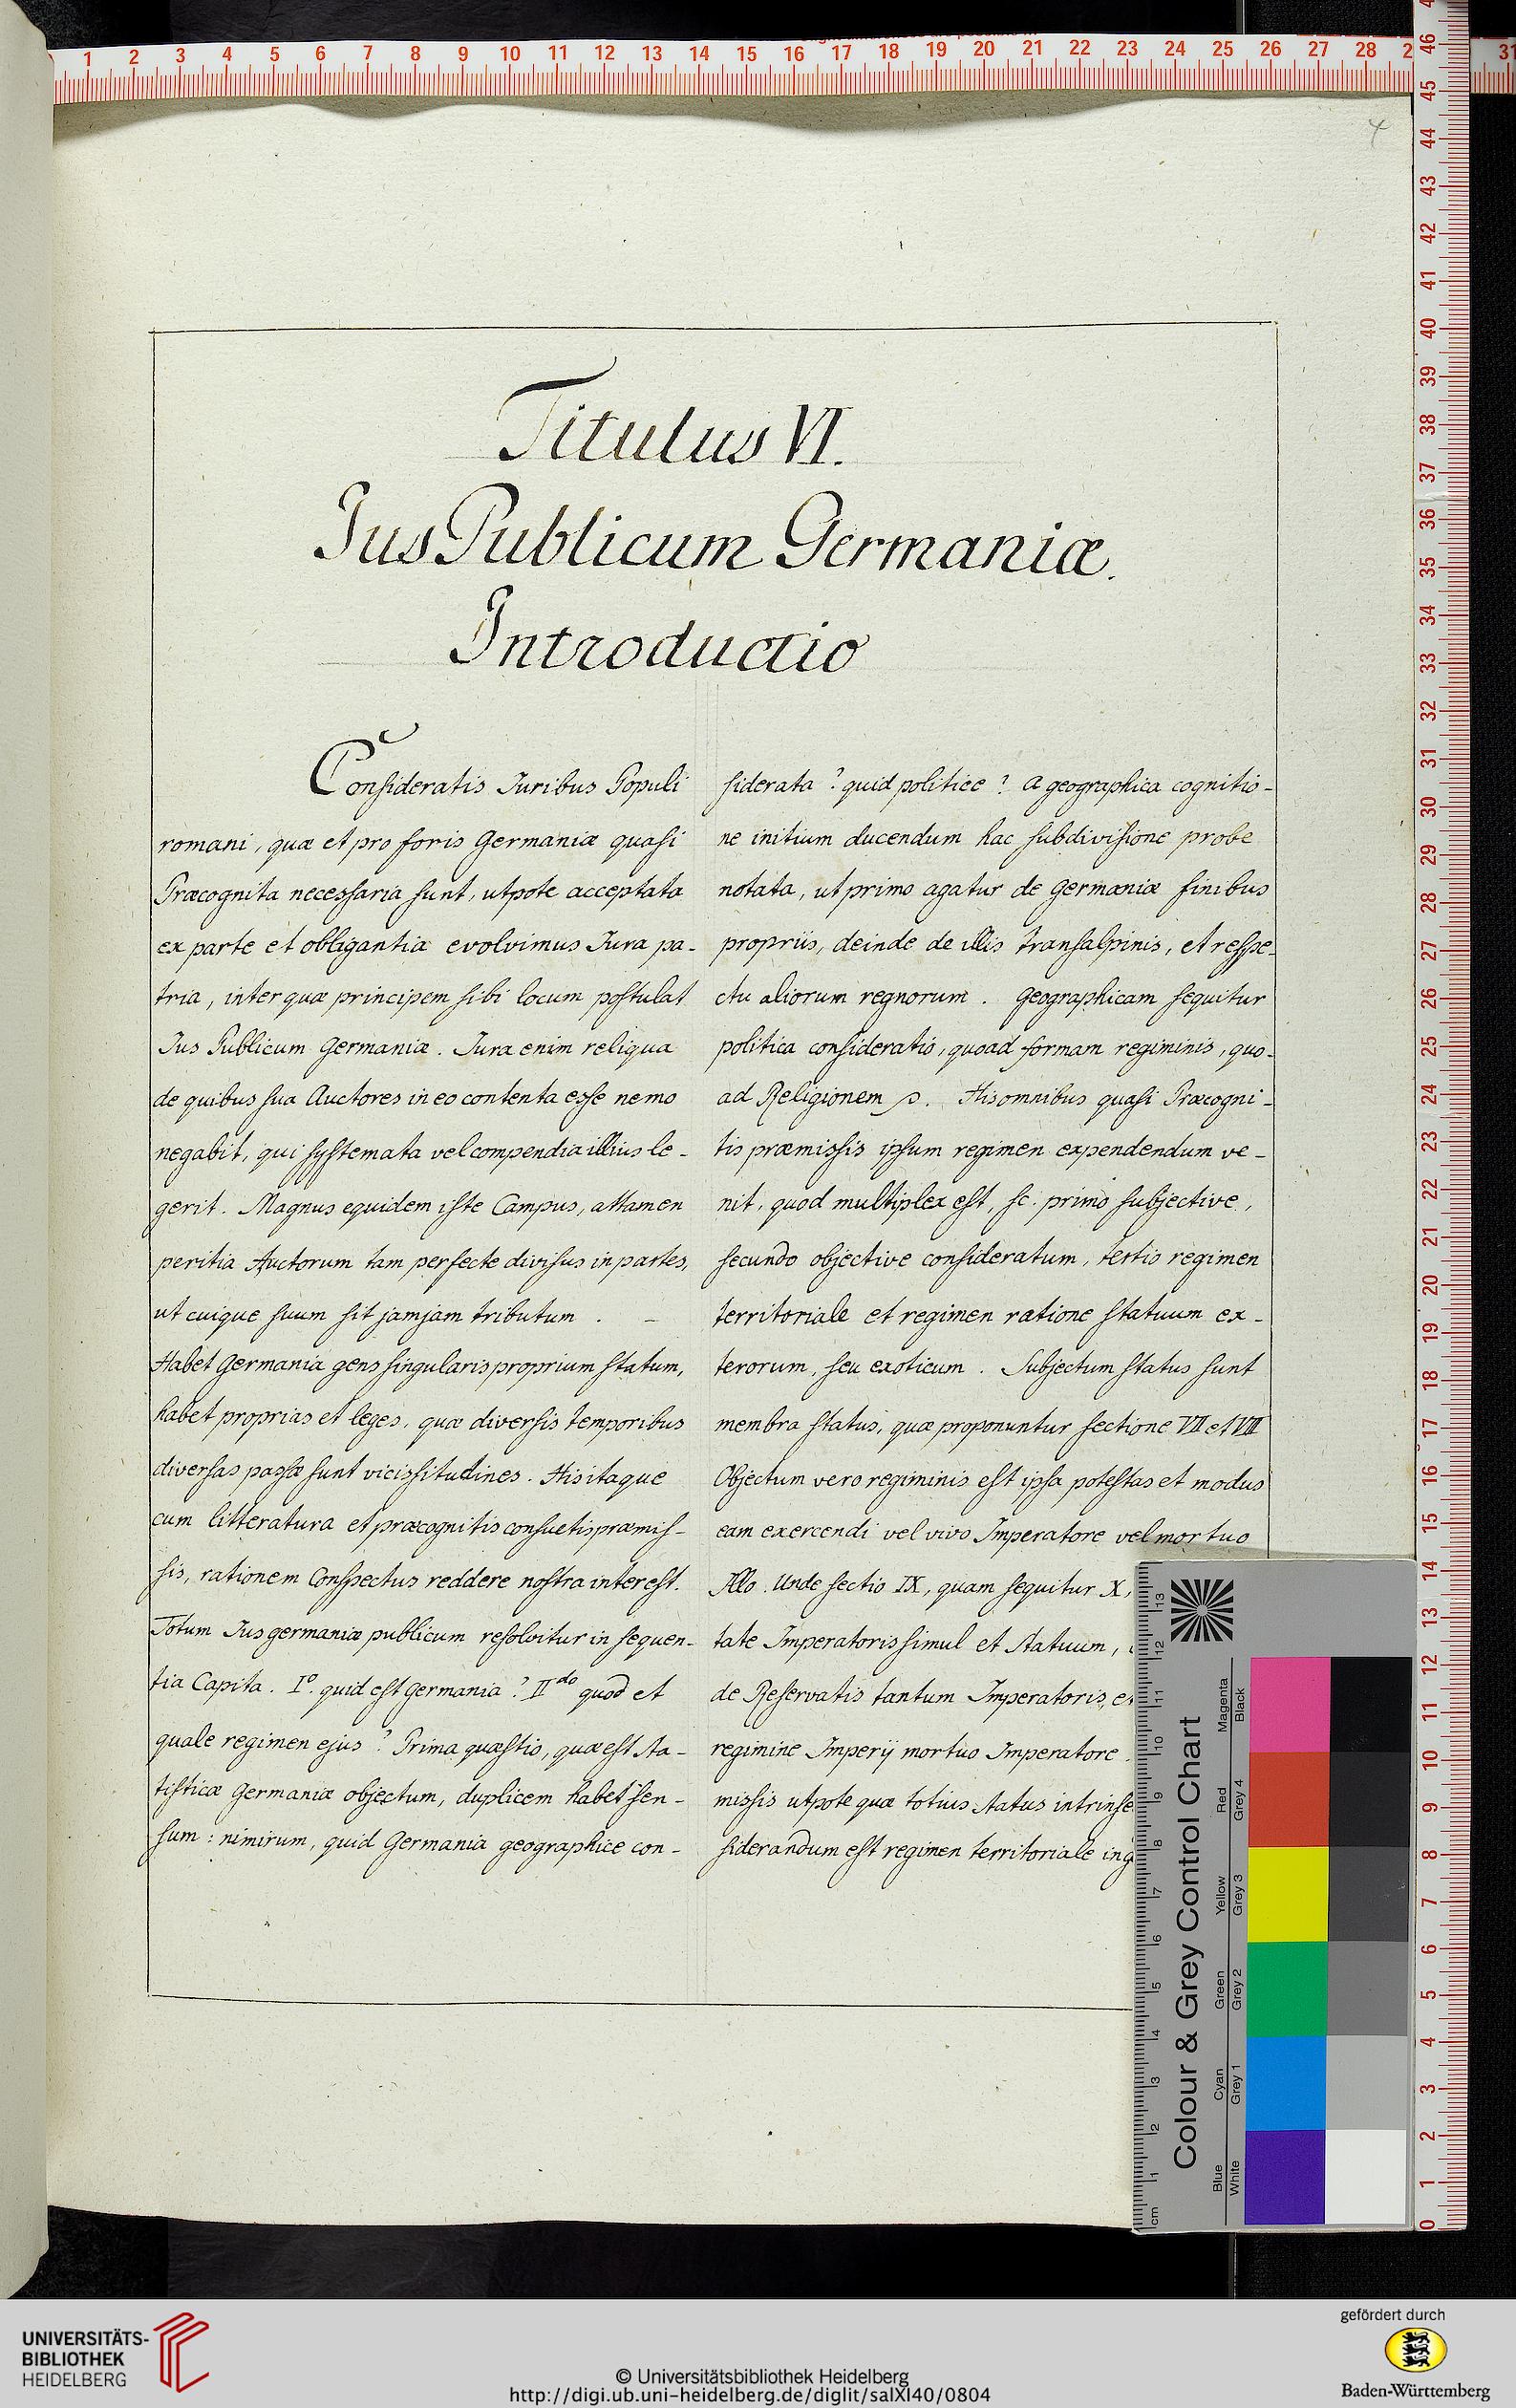 4
Titulus VI.
Jus Publicum Germaniæ.
Introductio
Consideratis Juribus Populi
romani, quæ et pro foris Germaniæ quasi
Præcognita necessaria sunt, utpote acceptata
ex parte et obligantia evolvimus Jura pa-
tria, inter quæ principem sibi locum postulat
Jus Publicum Germaniæ. Jura enim reliqua
de quibus sua Auctores in eo contenta esse nemo
negabit, qui systemata vel compendia illius le-
gerit. Magnus equidem iste Campus, attamen
peritia Auctorum tam perfecte divisus in partes,
ut cuique suum sit jamjam tributum. -
Habet Germania gens singularis proprium statum,
habet proprias et leges, quæ diversis temporibus
diversas passæ sunt vicissitudines. His itaque
cum litteratura et præcognitis consuetis præmis-
sis, rationem Conspectus reddere nostra interest.
Totum Jus germaniæ publicum resolvitur in sequen-
tia Capita. I° quid est Germania? II do quod et
quale regimen ejus? Prima quæstio, quæ est sta-
tisticæ Germaniæ objectum, duplicem habet sen-
sum: nimirum, quid Germania geographice con-
siderata? quid politice? A geographica cognitio-
ne initium ducendum hac subdivisione probe
notata, ut primo agatur de Germaniæ finibus
propriis, deinde de illis transalpinis, et respe-
ctu aliorum regnorum. Geographicam sequitur
politica consideratio, quoad formam regiminis, quo-
ad Religionem. His omnibus quasi Præcogni-
tis præmissis ipsum regimen expendendum ve-
nit, quod multiplex est, sc. primo subjective,
secundo objective consideratum, tertio regimen
territoriale et regimen ratione statuum ex-
terorum, seu exoticum. Subjectum status sunt
membra status, quæ proponuntur sectione VII et VIII
Objectum vero regiminis est ipsa potestas et modus
eam exercendi vel vivo Imperatore vel mortuo
Illo. Unde sectio IX, quam sequitur X,
tate Imperatoris simul et statuum,
de Reservatis tantum Imperatoris, et
regimine Imperij mortuo Imperatore.
missis utpote quæ totius status intrinse
siderandum est regimen territoriale ing
Colour & Grey Control Chart
Magenta Black
Red Grey 4
Yellow Grey 3
Green Grey 2
Cyan Grey 1
Blue White
cm
UNIVERSITÄTS-
BIBLIOTHEK
HEIDELBERG
© Universitätsbibliothek Heidelberg
http://digi.ub.uni-heidelberg.de/diglit/salXI40/0804
gefördert durch
Baden-Württemberg